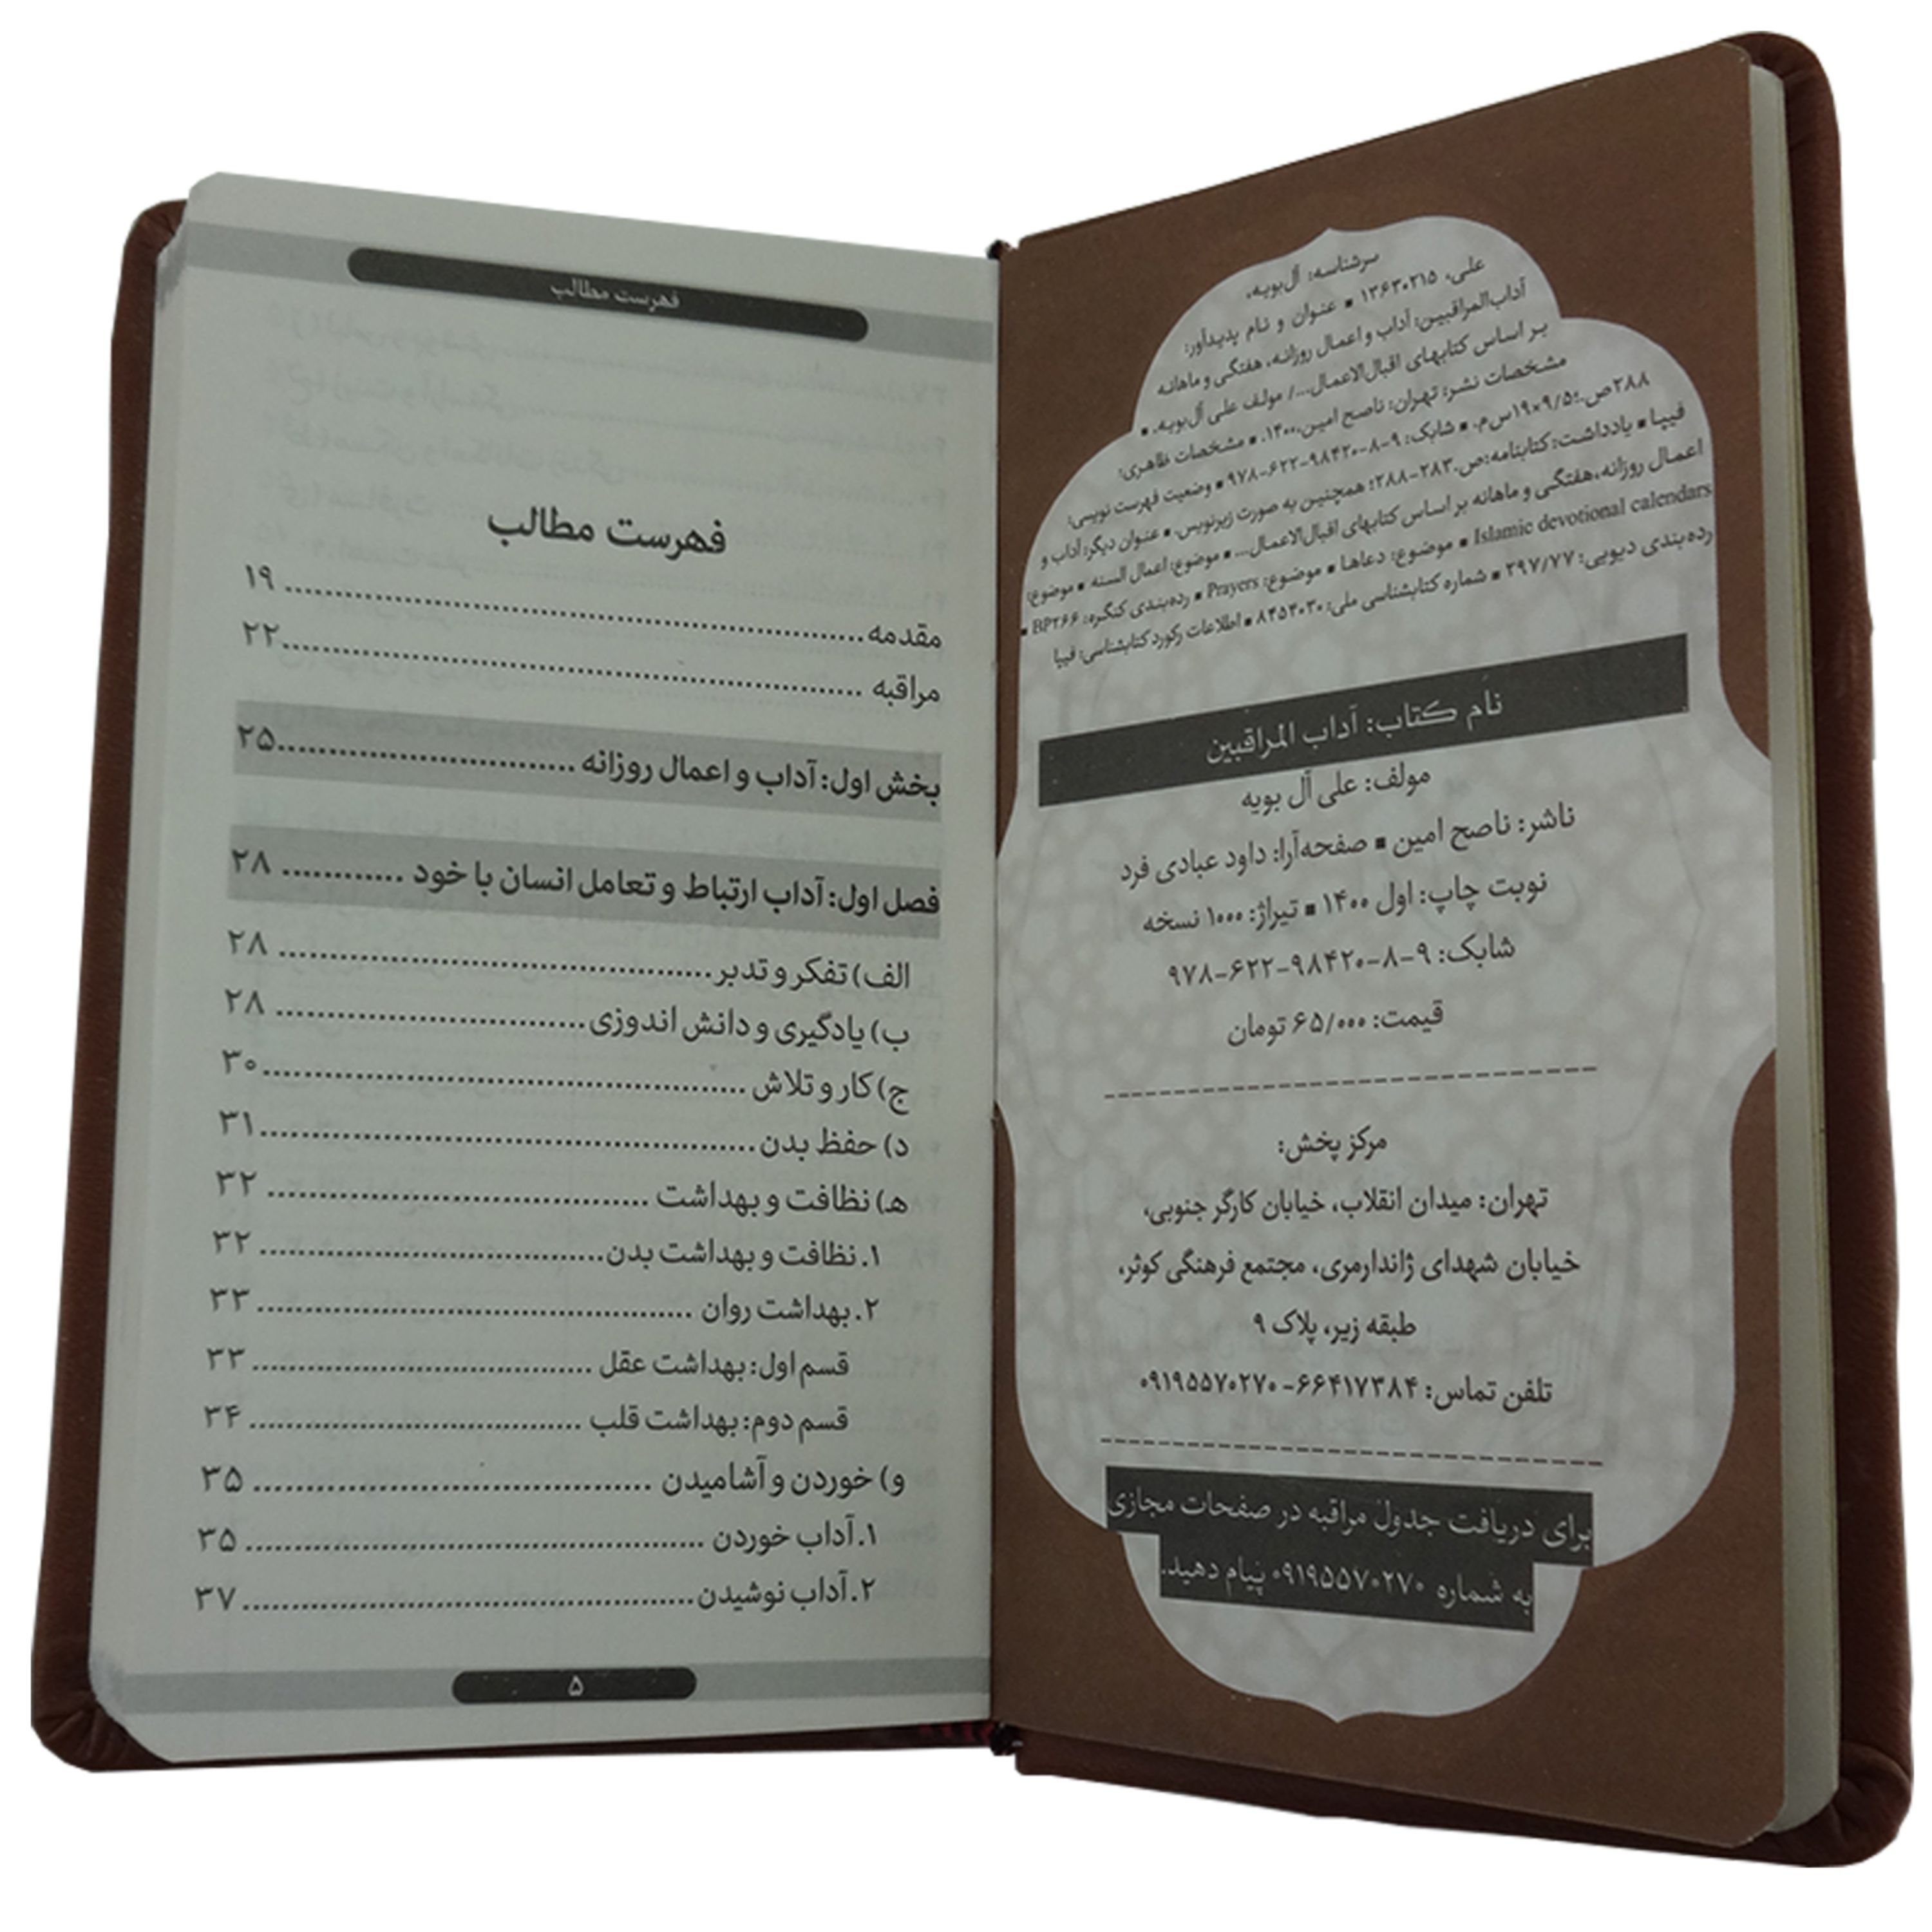 سرشناسه: آل‌بویه،
علی، ۱۳۶۳۰۲۱۵ ▪ عنوان و نام پدیدآور:
آداب‌المراقبین: آداب و اعمال روزانه، هفتگی و ماهانه
بر اساس کتابهای اقبال‌الاعمال.../ مولف علی آل‌بویه. ▪
مشخصات نشر: تهران: ناصح امین،۱۴۰۰. ▪ مشخصات ظاهری:
۲۸۸ص.؛۹/۵×۱۹س‌م. ▪ شابک: ۹-۸-۹۸۴۲۰-۶۲۲-۹۷۸ ▪ وضعیت فهرست نویسی:
فیپا ▪ یادداشت: کتابنامه:ص.۲۸۳-۲۸۸؛ همچنین به صورت زیرنویس. ▪ عنوان دیگر: آداب و
اعمال روزانه،هفتگی و ماهانه بر اساس کتابهای اقبال‌الاعمال... ▪ موضوع: اعمال السنه ▪ موضوع:
Islamic devotional calendars ▪ موضوع: دعاها ▪ موضوع: Prayers ▪ رده‌بندی کنگره: BP۲۶۶ ▪
رده‌بندی دیویی: ۲۹۷/۷۷ ▪ شماره کتابشناسی ملی: ۸۴۵۴۰۳۰ ▪ اطلاعات رکورد کتابشناسی: فیپا
نام کتاب: آداب المراقبین
مولف: علی آل بویه
ناشر: ناصح امین ▪ صفحه‌آرا: داود عبادی فرد
نوبت چاپ: اول ۱۴۰۰ ▪ تیراژ: ۱۰۰۰ نسخه
شابک: ۹-۸-۹۸۴۲۰-۶۲۲-۹۷۸
قیمت: ۶۵/۰۰۰ تومان
مرکز پخش:
تهران: میدان انقلاب، خیابان کارگر جنوبی،
خیابان شهدای ژاندارمری، مجتمع فرهنگی کوثر،
طبقه زیر، پلاک ۹
تلفن تماس: ۶۶۴۱۷۳۸۴-۰۹۱۹۵۵۷۰۲۷۰
برای دریافت جدول مراقبه در صفحات مجازی
به شماره ۰۹۱۹۵۵۷۰۲۷۰ پیام دهید.
فهرست مطالب
فهرست مطالب
مقدمه ........ ۱۹
مراقبه ........ ۲۲
بخش اول: آداب و اعمال روزانه ........ ۲۵
فصل اول: آداب ارتباط و تعامل انسان با خود ........ ۲۸
الف) تفکر و تدبر ........ ۲۸
ب) یادگیری و دانش اندوزی ........ ۲۸
ج) کار و تلاش ........ ۳۰
د) حفظ بدن ........ ۳۱
ه) نظافت و بهداشت ........ ۳۲
۱. نظافت و بهداشت بدن ........ ۳۲
۲. بهداشت روان ........ ۳۳
قسم اول: بهداشت عقل ........ ۳۳
قسم دوم: بهداشت قلب ........ ۳۴
و) خوردن و آشامیدن ........ ۳۵
۱. آداب خوردن ........ ۳۵
۲. آداب نوشیدن ........ ۳۷
۵